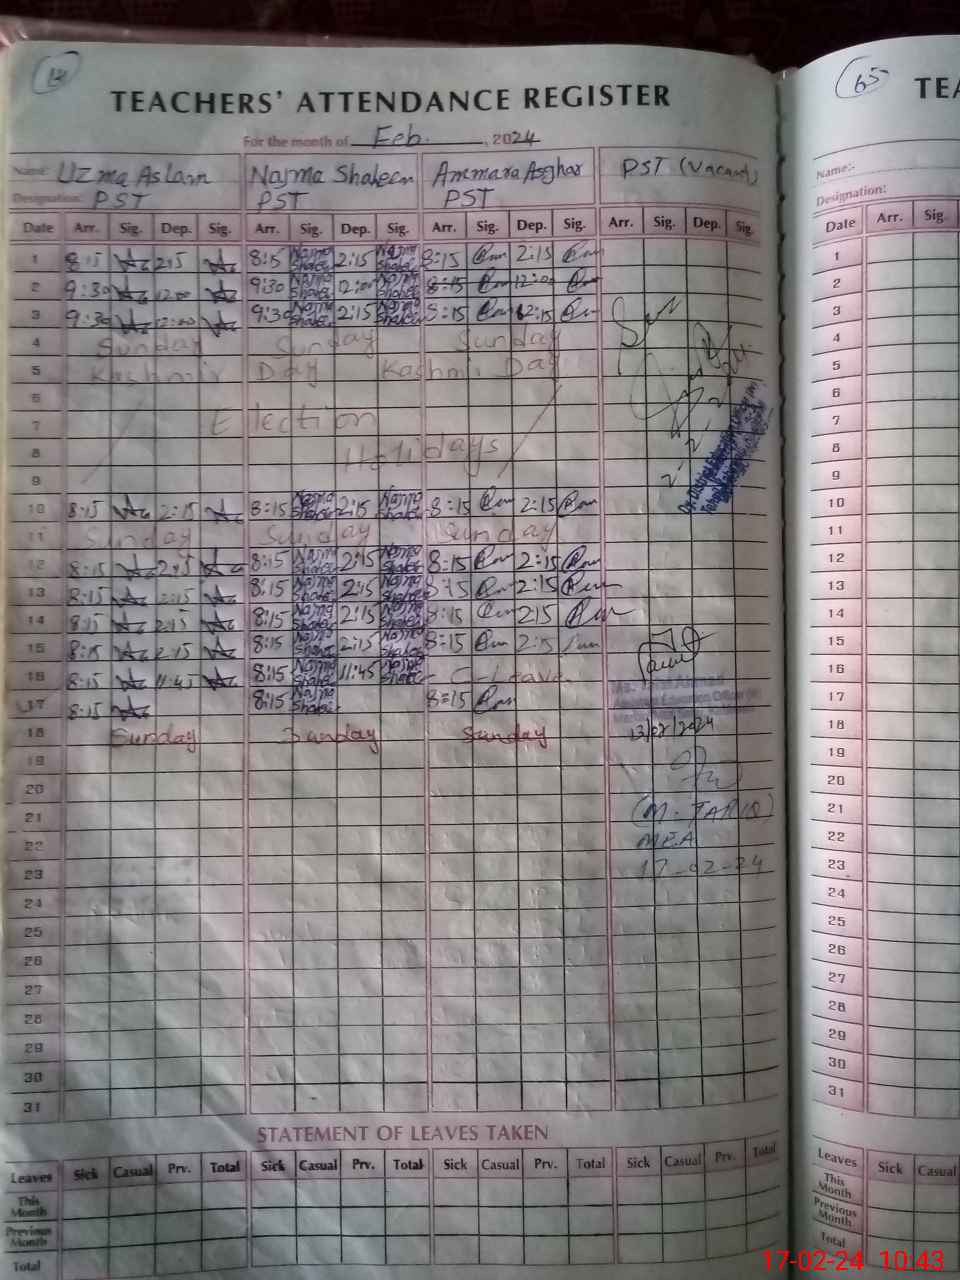 65
TEACHERS' ATTENDANCE REGISTER
TEA
For the month of Feb. , 2024
Name: Uzma Aslam Najma Shaheen Ammara Asghar PST (Vacant)
Designation: PST PST PST
Name:-
Designation:
Date Arr. Sig. Dep. Sig. Arr. Sig. Dep. Sig. Arr. Sig. Dep. Sig. Arr. Sig. Dep. Sig. Date Arr. Sig.
1 8:15 2:15 8:15 Najma Shaheen 2:15 Najma Shaheen 8:15 2:15 1
2 9:30 12:00 9:30 Najma Shaheen 12:00 Najma Shaheen 8:15 12:00 2
3 9:30 12:00 9:30 Najma Shaheen 2:15 Najma Shaheen 8:15 12:15 3
4 Sunday Sunday Sunday 4
5 Kashmir Day Kashmir Day 5
6 6
7 Election 7
8 Holidays 8
9 9
10 8:15 2:15 8:15 Najma Shaheen 2:15 Najma Shaheen 8:15 2:15 10
11 Sunday Sunday Sunday 11
12 8:15 2:15 8:15 Najma Shaheen 2:15 Najma Shaheen 8:15 2:15 12
13 8:15 2:15 8:15 Najma Shaheen 2:15 Najma Shaheen 8:15 2:15 13
14 8:15 2:15 8:15 Najma Shaheen 2:15 Najma Shaheen 8:15 2:15 14
15 8:15 2:15 8:15 Najma Shaheen 2:15 Najma Shaheen 8:15 2:15 15
16 8:15 11:45 8:15 Najma Shaheen 11:45 Najma Shaheen C-Leave 16
17 8:15 8:15 Najma Shaheen 8:15 17
18 Sunday Sunday Sunday 13/02/2024 18
19 19
20 20
21 (M. TARIQ) 21
22 MEA 22
23 17-02-24 23
24 24
25 25
26 26
27 27
28 28
29 29
30 30
31 31
STATEMENT OF LEAVES TAKEN
Leaves Sick Casual Prv. Total Sick Casual Prv. Total Sick Casual Prv. Total Sick Casual Prv. Total Leaves Sick Casual
This Month This Month
Previous Month Previous Month
Total Total
17-02-24 10:43